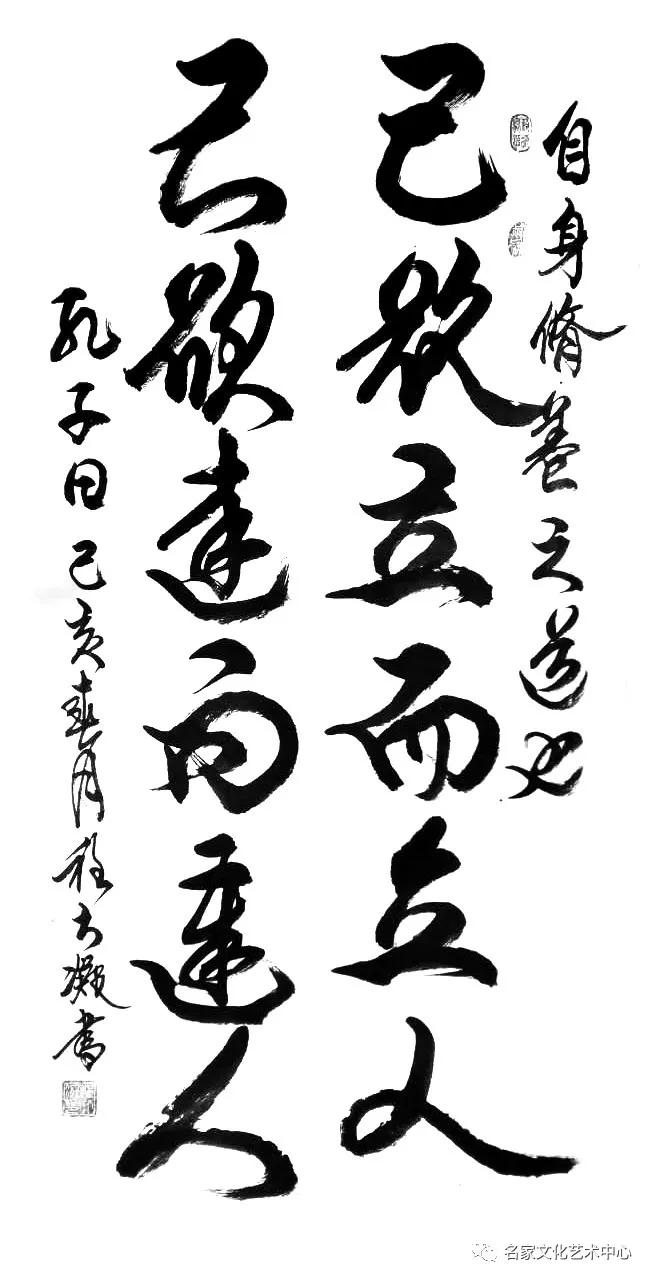 自身脩養之道也
己欲立而立人
己欲達而達人
孔子曰己亥春月程大凝書
名家文化艺术中心